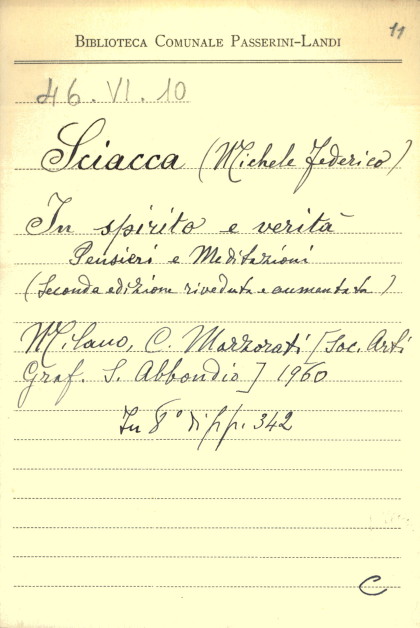 11
BIBLIOTECA COMUNALE PASSERINI-LANDI
46. VI. 10
Sciacca (Michele Federico)
In spirito e verità
Pensieri e Meditazioni
(Seconda edizione riveduta e aumentata)
Milano, C. Marzorati [Soc. Arti
Graf. S. Abbondio] 1960
In 8° di pp. 342
C